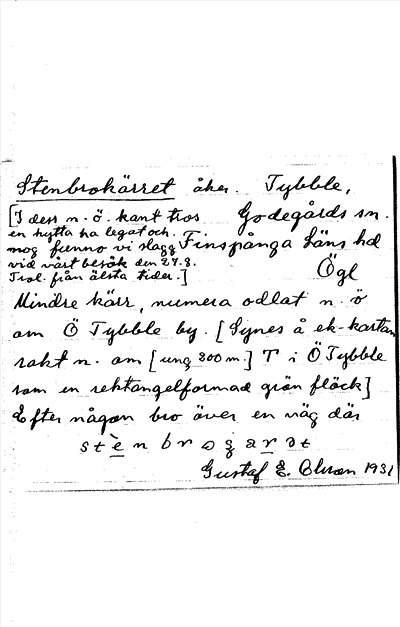 Stenbrokärret åker. Tybble,
[I dess n.ö. kant tros Godegårds sn.
en hytta ha legat och.
mog funno vi slagg Finspånga läns hd
vid vårt besök den 27.8.
Trol. från älsta tider.] Ögl
Mindre kärr, numera odlat n. ö
om Ö Tybble by. [Synes å ek-kartan
rakt n. om [ung 300 m.] T i Ö Tybble
som en rektangelformad grön fläck]
Efter någon bro över en väg där
Gustaf E. Olsson 1931